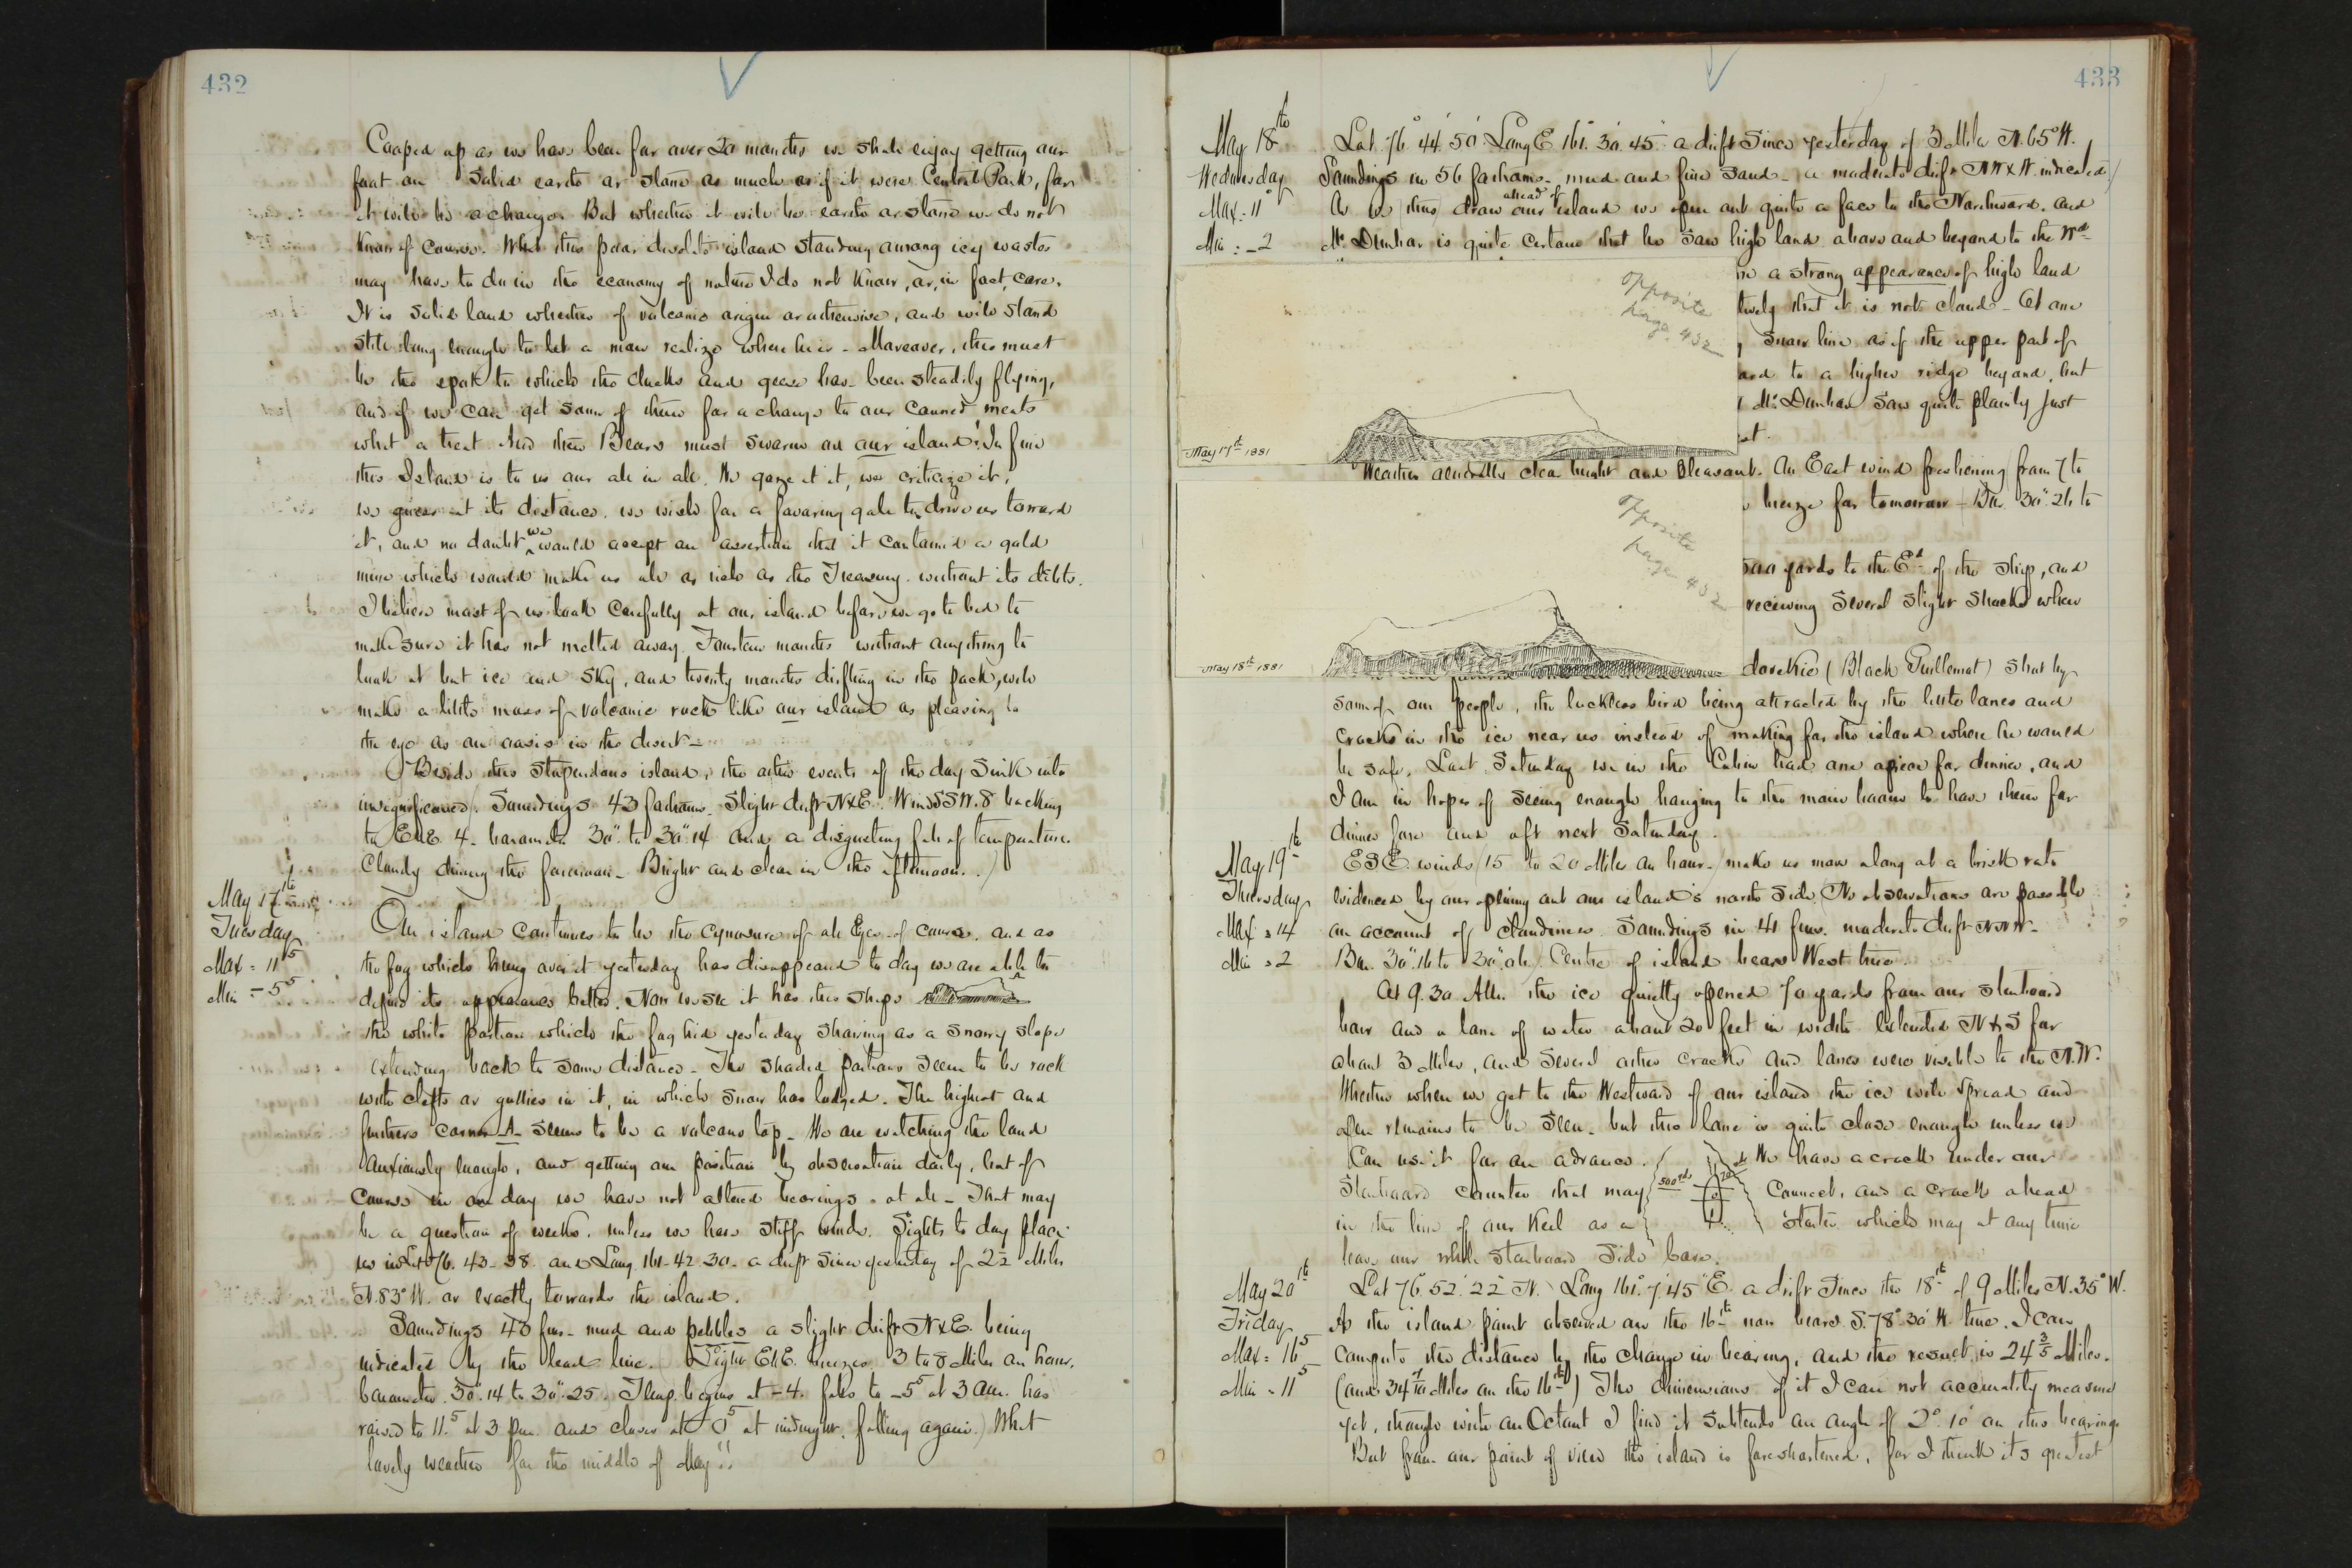 432
Cooped up as we have been for over 20 months we shall enjoy getting our
foot on solid earth or stone as much as if it were Central Park, for
it will be a change. But whether it will be earth or stone we do not
know of course. What this poor desolate island standing among icy wastes
may have to do in the economy of nature I do not know, or, in fact, care.
It is solid land whether of volcanic origin or otherwise, and will stand
still long enough to let a man realize where he is - Moreover, this must
be the spot to which the ducks and geese have been steadily flying,
and if we can get some of them for a change to our canned meats
what a treat. And then Bears must swarm on our island! In fine
this Island is to us our all in all. We gaze at it, we criticize it,
we guess at its distance, we wish for a favoring gale to drive us toward
it, and no doubt we would accept an assertion that it contained a gold
mine which would make us all as rich as the Treasury without its debts.
I believe most of us look carefully at our island before we go to bed to
make sure it has not melted away. Fourteen months without anything to
look at but ice and sky, and twenty months drifting in the pack, will
make a little mass of volcanic rock like our island as pleasing to
the eye as an oasis in the desert -
Beside this stupendous island, the other events of the day sink into
insignificance. Soundings 43 fathoms. Slight drift NxE. Wind SSW. 8 backing
to ENE 4. barometer 30" to 30".14 and a disgusting fall of temperature.
Cloudy during the forenoon - Bright and clear in the afternoon.)
May 17th
Tuesday
Max = 11^5
Min = -5^5
Our island continues to be the cynosure of all Eyes of course, and as
the fog which hung over it yesterday has disappeared to day we are able to
define its appearance better. Now we see it has this shape
the white portion which the fog hid yesterday showing as a snowy slope
extending back to some distance - The shaded portions seem to be rock
with clefts or gullies in it, in which snow has lodged. The highest and
furthers corner A seems to be a volcano top - We are watching the land
anxiously enough, and getting our position by observation daily, but of
course in one day we have not altered bearings at all - That may
be a question of weeks, unless we have stiff winds. Sights to day place
us in Lat 76. 43. 38. and Long. 161. 42. 30. a drift since yesterday of 2½ Miles
N.83° W. or exactly towards the island.
Soundings 43 fms - mud and pebbles a slight drift NxE being
indicated by the lead line. Light ENE. breezes 3 to 8 Miles an hour.
barometer 30".14 to 30".25. Temp. begins at -4. falls to -5^5 at 3 am. has
raised to 11.^5 at 3 pm. and closes at 0^5 at midnight. falling again.) What
lovely weather for the middle of May!!
433
May 18th
Wednesday
Max = 11°
Min = -2
Lat. 76° 44' 50" Long E 161. 30. 45" a drift since yesterday of 3 Miles N.65°W.
Soundings in 56 fathoms - mud and fine sand - (a moderate drift NWxW. indicated)
As we thus draw ahead of our island we open out quite a face to the Northward. and
Mr. Dunbar is quite certain that he saw high land above and beyond to the Wd
a strong appearance of high land
that it is not cloud - At one
snow line as if the upper part of
to a higher ridge beyond, but
Mr. Dunbar saw quite plainly just
opposite
page. 432
May 17th 1881
Weather generally clear bright and pleasant. An East wind freshening from 7 to
breeze for tomorrow - Bar 30".26 to
yards to the Ed of the ship, and
receiving several slight shocks when
opposite
page 432
May 18th 1881
dovekie (Black Guillemot) shot by
some of our people, the luckless bird being attracted by the little lanes and
cracks in the ice near us instead of making for the island where he would
be safe. Last Saturday we in the Cabin had one apiece for dinner, and
I am in hopes of seeing enough hanging to the main boom to have them for
dinner fore and aft next Saturday.
May 19th
Thursday
Max = 14
Min = 2
ESE. winds (15 to 20 Miles an hour) make us move along at a brisk rate
evidenced by our opening out our island's north side (No observations are possible
on account of cloudiness. Soundings in 41 fms. moderate drift NNW -
Bar. 30".16 to 30".06) Centre of island bears West true.
At 9.30 AM. the ice quietly opened 70 yards from our starboard
bow and a lane of water about 20 feet in width extended N & S for
about 3 Miles, and several other cracks and lanes were visible to the N.W.
Whether when we get to the Westward of our island the ice will spread and
remains to be seen - but this lane is quite close enough unless we
can use it for an advance.
500 yds
70
We have a crack under our
Starboard counter that may connect, and a crack ahead
in the line of our keel as a starter which may at any time
leave our whole starboard side bare.
May 20th
Friday
Max = 16^5
Min = 11^5
Lat 76° 52' 22" N. Long 161° 7' 45" E. a drift since the 18th of 9 Miles N.35°W.
As the island point observed on the 16th now bears S.78°.30' W. true. I can
compute the distance by the change in bearing, and the result is 24 3/5 Miles.
(and 34 4/10 Miles on the 16th) The dimensions of it I can not accurately measure
yet, though with an Octant I find it subtends an angle of 2°.10' on this bearing.
But from our point of view the island is foreshortened, for I think its greatest